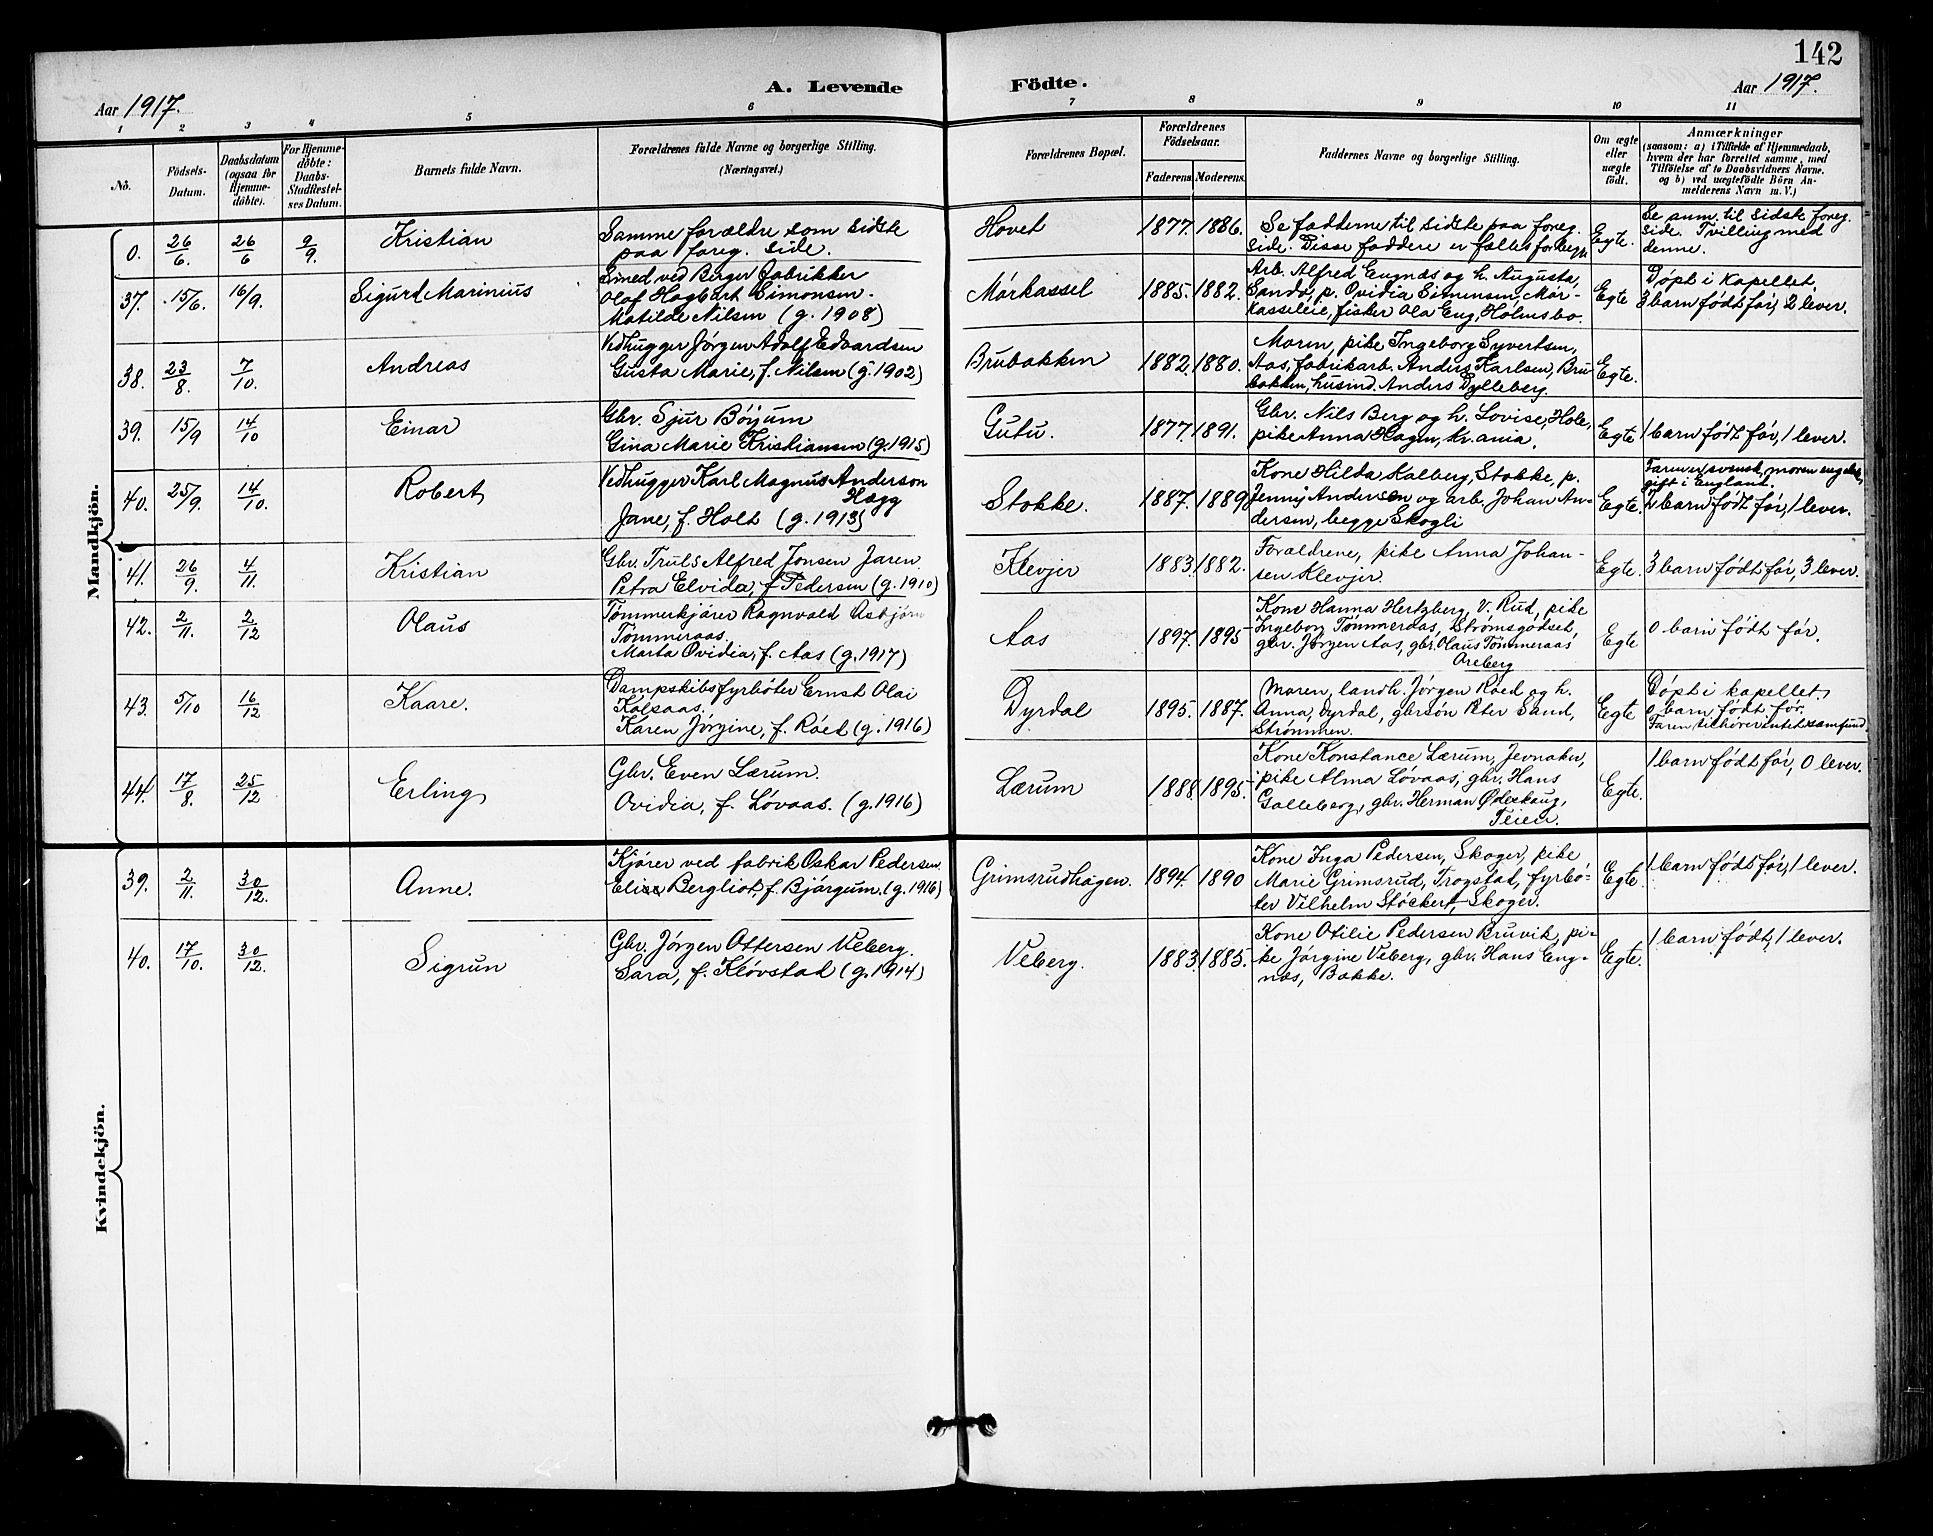 142
A. Levende Födte.
Aar 1917.
Aar 1917.
1 2 3 4 5 6 7 8 9 10 11
No.
Födsels-Datum.
Daabsdatum (ogsaa for Hjemme-döbte).
For Hjemme-döbte: Daabs-Stadfæstel-ses Datum.
Barnets fulde Navn.
Forældrenes fulde Navne og borgerlige Stilling.
(Næringsvei.)
Forældrenes Bopæl.
Forældrenes Födselsaar.
Faderens. Moderens.
Faddernes Navne og borgerlige Stilling.
Om ægte eller uægte födt.
Anmærkninger
(saasom: a) i Tilfælde af Hjemmedaab,
hvem der har forrettet samme, med
Tilföielse af to Daabsvidners Navne,
og b) ved uægtefödte Börn An-
melderens Navn m. V.)
Mandkjön.
0. 26/6. 26/6 9/9. Kristian
Samme forældre som sidste
paa foreg. side.
Hovet 1877. 1886.
Se fadderne til sidste paa foreg.
side. Disse faddere er fælles for begge
Egte.
Se anm. til sidste foreg.
side. Tvilling med
denne.
37. 15/6. 16/9. Sigurd Marinius
Smed ved Berger fabrikker
Olaf Hagbart Simonsen.
Matilde Nilsen (g. 1908)
Mörkassel 1885. 1882.
Arb. Alfred Engnæs og h. Augusta,
Sandö, p. Ovidia Simensen, Mör-
kasseleie, fisker Ola Eng, Holmsbo.
Egte
Döpt i kapellet.
3 barn födt för, 2 lever.
38. 23/8. 7/10. Andreas
Vedhugger Jörgen Adolf Edvardsen
Gusta Marie, f. Nilsen (g. 1902)
Brubakken 1882. 1880.
Moren, pike Ingeborg Syvertsen,
Aas, fabrikarb. Anders Karlsen, Bru-
bakken, husind. Anders Dylleberg.
Egte.
39. 15/9 14/10 Einar
Gbr. Sjur Böyum
Gina Marie Kristiansen (g. 1915)
Gutu. 1877. 1891.
Gbr. Nils Berg og h. Lovise, Hole,
pike Anna Hagen, kr.ania.
Egte
1 barn födt för, 1 lever.
40. 25/9. 14/10. Robert
Vedhugger Karl Magnus Anderson
Hægg
Jane, f. Holt (g. 1913)
Stokke. 1887. 1889
Kone Hilda Kalberg, Stokke, p.
Jenny Andersen og arb. Johan An-
dersen, begge Skogli
Egte.
Faren er svensk, moren engelsk,
gift i England.
2 barn födt för, 1 lever.
41. 26/9. 4/11. Kristian
Gbr. Truls Alfred Jonsen Jaren
Petra Elvida, f. Pedersen (g. 1910)
Klevjer 1883. 1882.
Forældrene, pike Anna Johan-
sen Klevjer.
Egte.
3 barn födt för, 3 lever.
42. 2/11. 2/12 Olaus
Tömmerkjörer Ragnvald Asbjörn
Tömmeraas.
Marta Ovidia, f. Aas (g. 1917)
Aas 1897. 1895
Kone Hanna Hertzberg, V. Rud, pike
Ingeborg Tömmeraas, Strömsgodset,
gbr. Jörgen Aas, gbr. Olaus Tömmeraas
Areberg
Egte
0 barn födt för.
43. 5/10 16/12 Kaare.
Dampskibsfyrböter Ernst Olai
Kolsaas.
Karen Jörgine, f. Röed (g. 1916)
Dyrdal 1895. 1887.
Moren, landh. Jörgen Röed og h.
Anna, Dyrdal, gbrsön Peter Sand,
Strömmen.
Egte
Döpt i kapellet.
0 barn födt för.
Faren tilhörer intet samfund.
44. 17/8. 25/12 Erling
Gbr. Even Lærum.
Ovidia, f. Lövaas. (g. 1916)
Lærum 1888. 1895.
Kone Konstance Lærum, Jevnaker,
pike Alma Lövaas, gbr. Hans
Galleberg, gbr. Herman Ødeskaug,
Teien.
Egte.
1 barn födt för, 0 lever.
Kvindekjön.
39. 2/11. 30/12. Anne.
Kjörer ved fabrik Oskar Pedersen
Elise Bergliot, f. Björgum. (g. 1916)
Grimsrudhagen. 1894. 1890
Kone Inga Pedersen, Skoger, pike
Marie Grimsrud, Trogstad, fyrbö-
ter Vilhelm Stöckert, Skoger.
Egte
1 barn födt för, 1 lever.
40. 17/10. 30/12. Sigrun
Gbr. Jörgen Ottersen Veberg.
Sara, f. Klövstad (g. 1914)
Veberg. 1883. 1885.
Kone Otilie Pedersen Bruvik, pi-
ke Jörgine Veberg, gbr. Hans Eng-
næs, Bakke.
Egte.
1 barn födt, 1 lever.